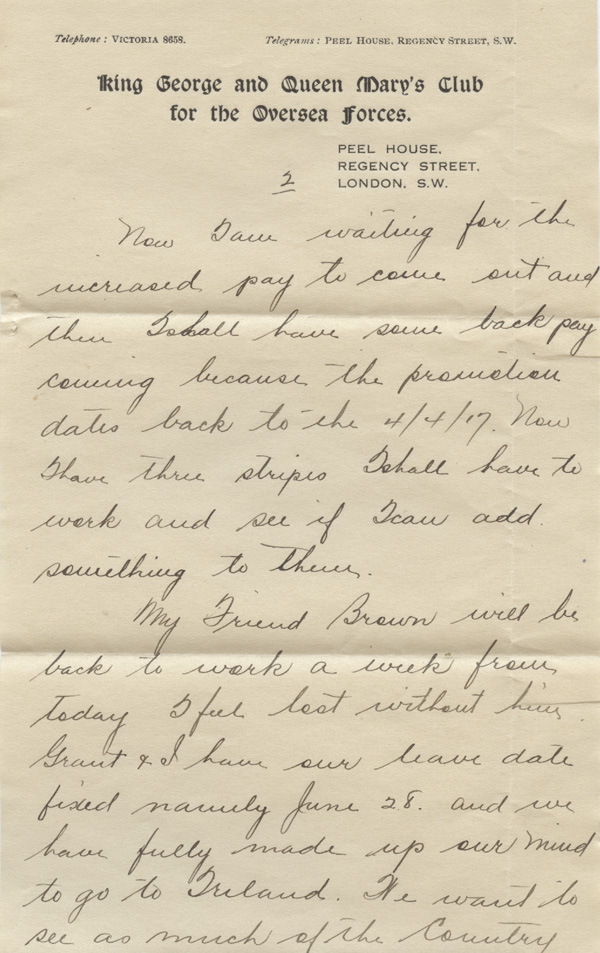 Telephone: VICTORIA 8658.
Telegrams: PEEL HOUSE, REGENCY STREET, S.W.
King George and Queen Mary's Club
for the Oversea Forces.
PEEL HOUSE,
REGENCY STREET,
LONDON, S.W.
2
Now I am waiting for the
increased pay to come out and
then I shall have some back pay
coming because the promotion
dates back to the 4/4/17. Now
I have three stripes I shall have to
work and see if I can add
something to them.
My Friend Brown will be
back to work a week from
today I feel lost without him.
Grant & I have our leave date
fixed namely June 28. and we
have fully made up our mind
to go to Ireland. We want to
see as much of the Country